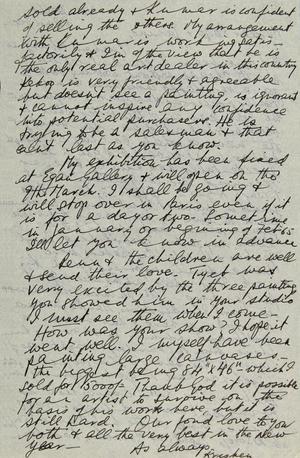 sold already & Kumar is confident
of selling the others. My arrangement
with Kumar is working satis-
factorily & I'm of the view that he is
the only real art dealer in this country
is very friendly & agreeable
but doesn't see a painting, is ignorant
& cannot inspire any confidence
into potential purchasers. He is
trying to be a salesman & that
can't last as you know.
My exhibition has been fixed
at Egan Gallery & will open on the
9th March. I shall be going &
will stop over in Paris even if it
is for a day or two. Sometime
in January or beginning of Feb 65
I'll let you know in advance
Renu & the children are well
& send their love. Tyeb was
very excited by the three paintings
you showed him in your studio
I must see them when I come -
How was your show? I hope it
went well. I myself have been
painting large canvases -
the biggest being 84" x 46" which I
sold for 3000f. Thank God it is possible
for an artist to survive on the
basis of his work here, but it is
still hard. Our fond love to you
both & all the very best in the New
Year - As always
Krishen